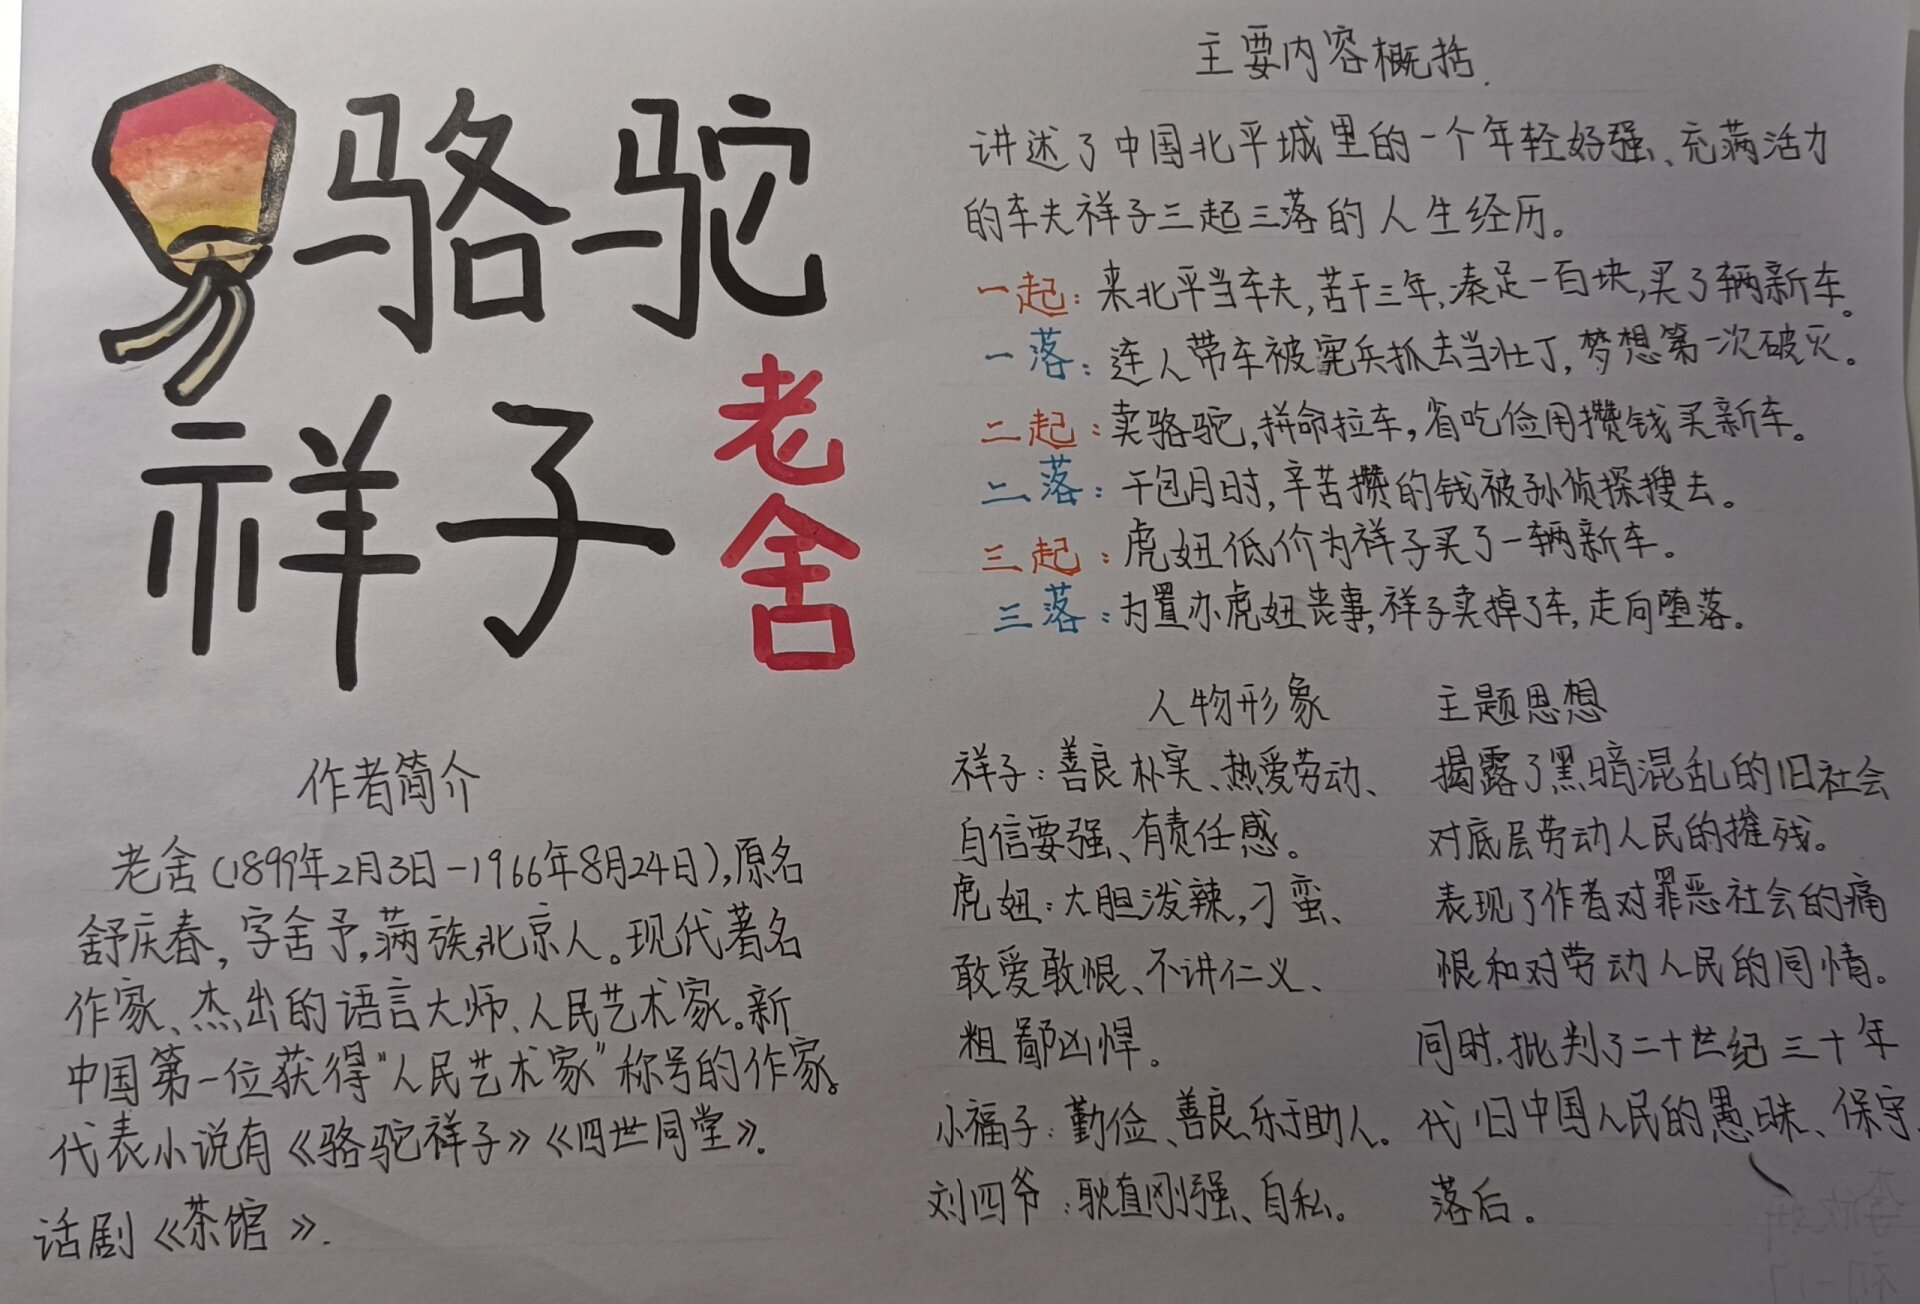 骆驼
祥子
老舍
作者简介
老舍(1899年2月3日-1966年8月24日),原名
舒庆春,字舍予,满族,北京人。现代著名
作家、杰出的语言大师、人民艺术家。新
中国第一位获得"人民艺术家"称号的作家。
代表小说有《骆驼祥子》《四世同堂》.
话剧《茶馆》.
主要内容概括.
讲述了中国北平城里的一个年轻好强、充满活力
的车夫祥子三起三落的人生经历。
一起:来北平当车夫,苦干三年,凑足一百块,买了辆新车。
一落:连人带车被宪兵抓去当壮丁,梦想第一次破灭。
二起:卖骆驼,拼命拉车,省吃俭用攒钱买新车。
二落:干包月时,辛苦攒的钱被孙侦探搜去。
三起:虎妞低价为祥子买了一辆新车。
三落:为置办虎妞丧事,祥子卖掉了车,走向堕落。
人物形象
祥子:善良朴实、热爱劳动、
自信要强、有责任感。
虎妞:大胆泼辣,刁蛮、
敢爱敢恨、不讲仁义、
粗鄙凶悍。
小福子:勤俭、善良、乐于助人。
刘四爷:耿直刚强、自私。
主题思想
揭露了黑暗混乱的旧社会
对底层劳动人民的摧残。
表现了作者对罪恶社会的痛
恨和对劳动人民的同情。
同时,批判了二十世纪三十年
代旧中国人民的愚昧、保守、
落后。